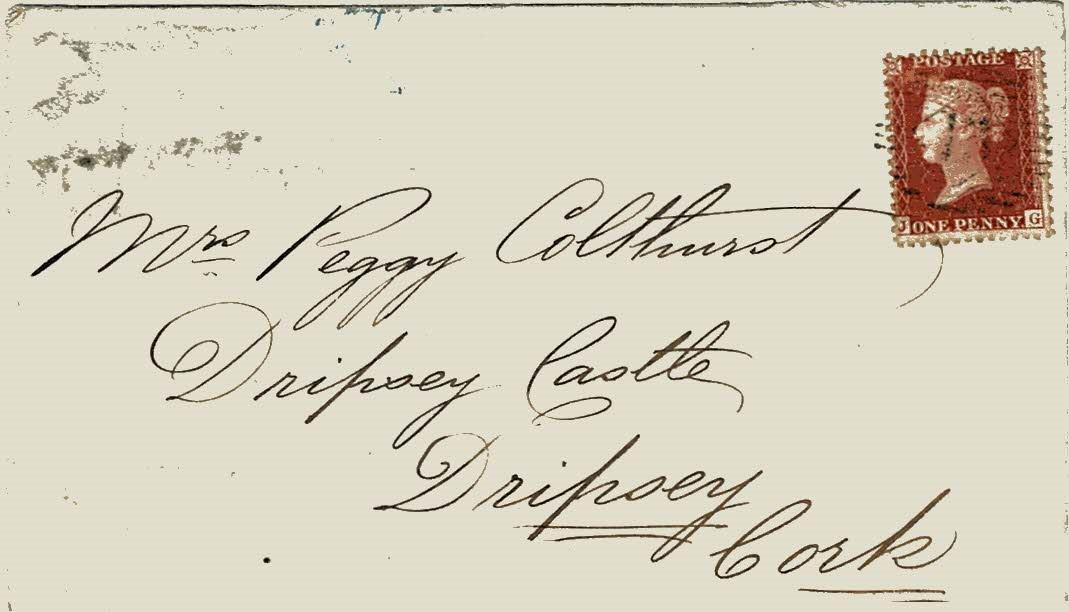 POSTAGE
J ONE PENNY G
Mrs Peggy Colthurst
Dripsey Castle
Dripsey
Cork